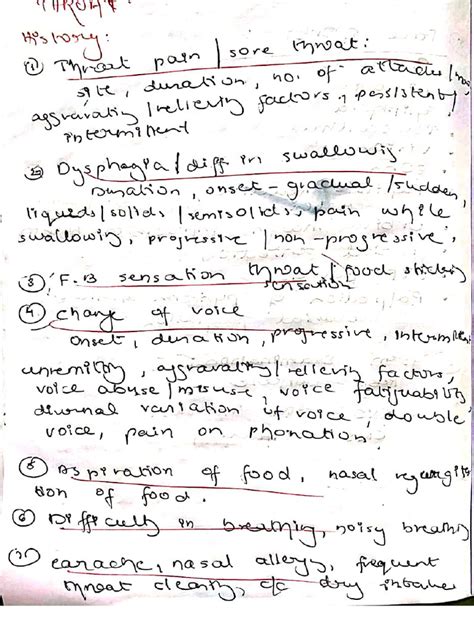 THROAT
History:
① Throat pain / sore throat:
site, duration, no. of attacks /
aggravating / relieving factors, persistent /
intermittent
② Dysphagia / diff in swallowing
Duration, onset - gradual / sudden,
liquids / solids / semisolids, pain while
swallowing, progressive / non-progressive,
③ F.B sensation throat / food sticking
sensation
④ change of voice
onset, duration, progressive, Intermittent
unremitting, aggravating / relieving factors,
voice abuse / misuse, voice fatiguability
diurnal variation of voice, double
voice, pain on phonation
⑤ Aspiration of food, nasal regurgita
tion of food.
⑥ Difficulty in breathing, noisy breathing
⑦ earache, nasal allergy, frequent
throat clearing, c/c dry